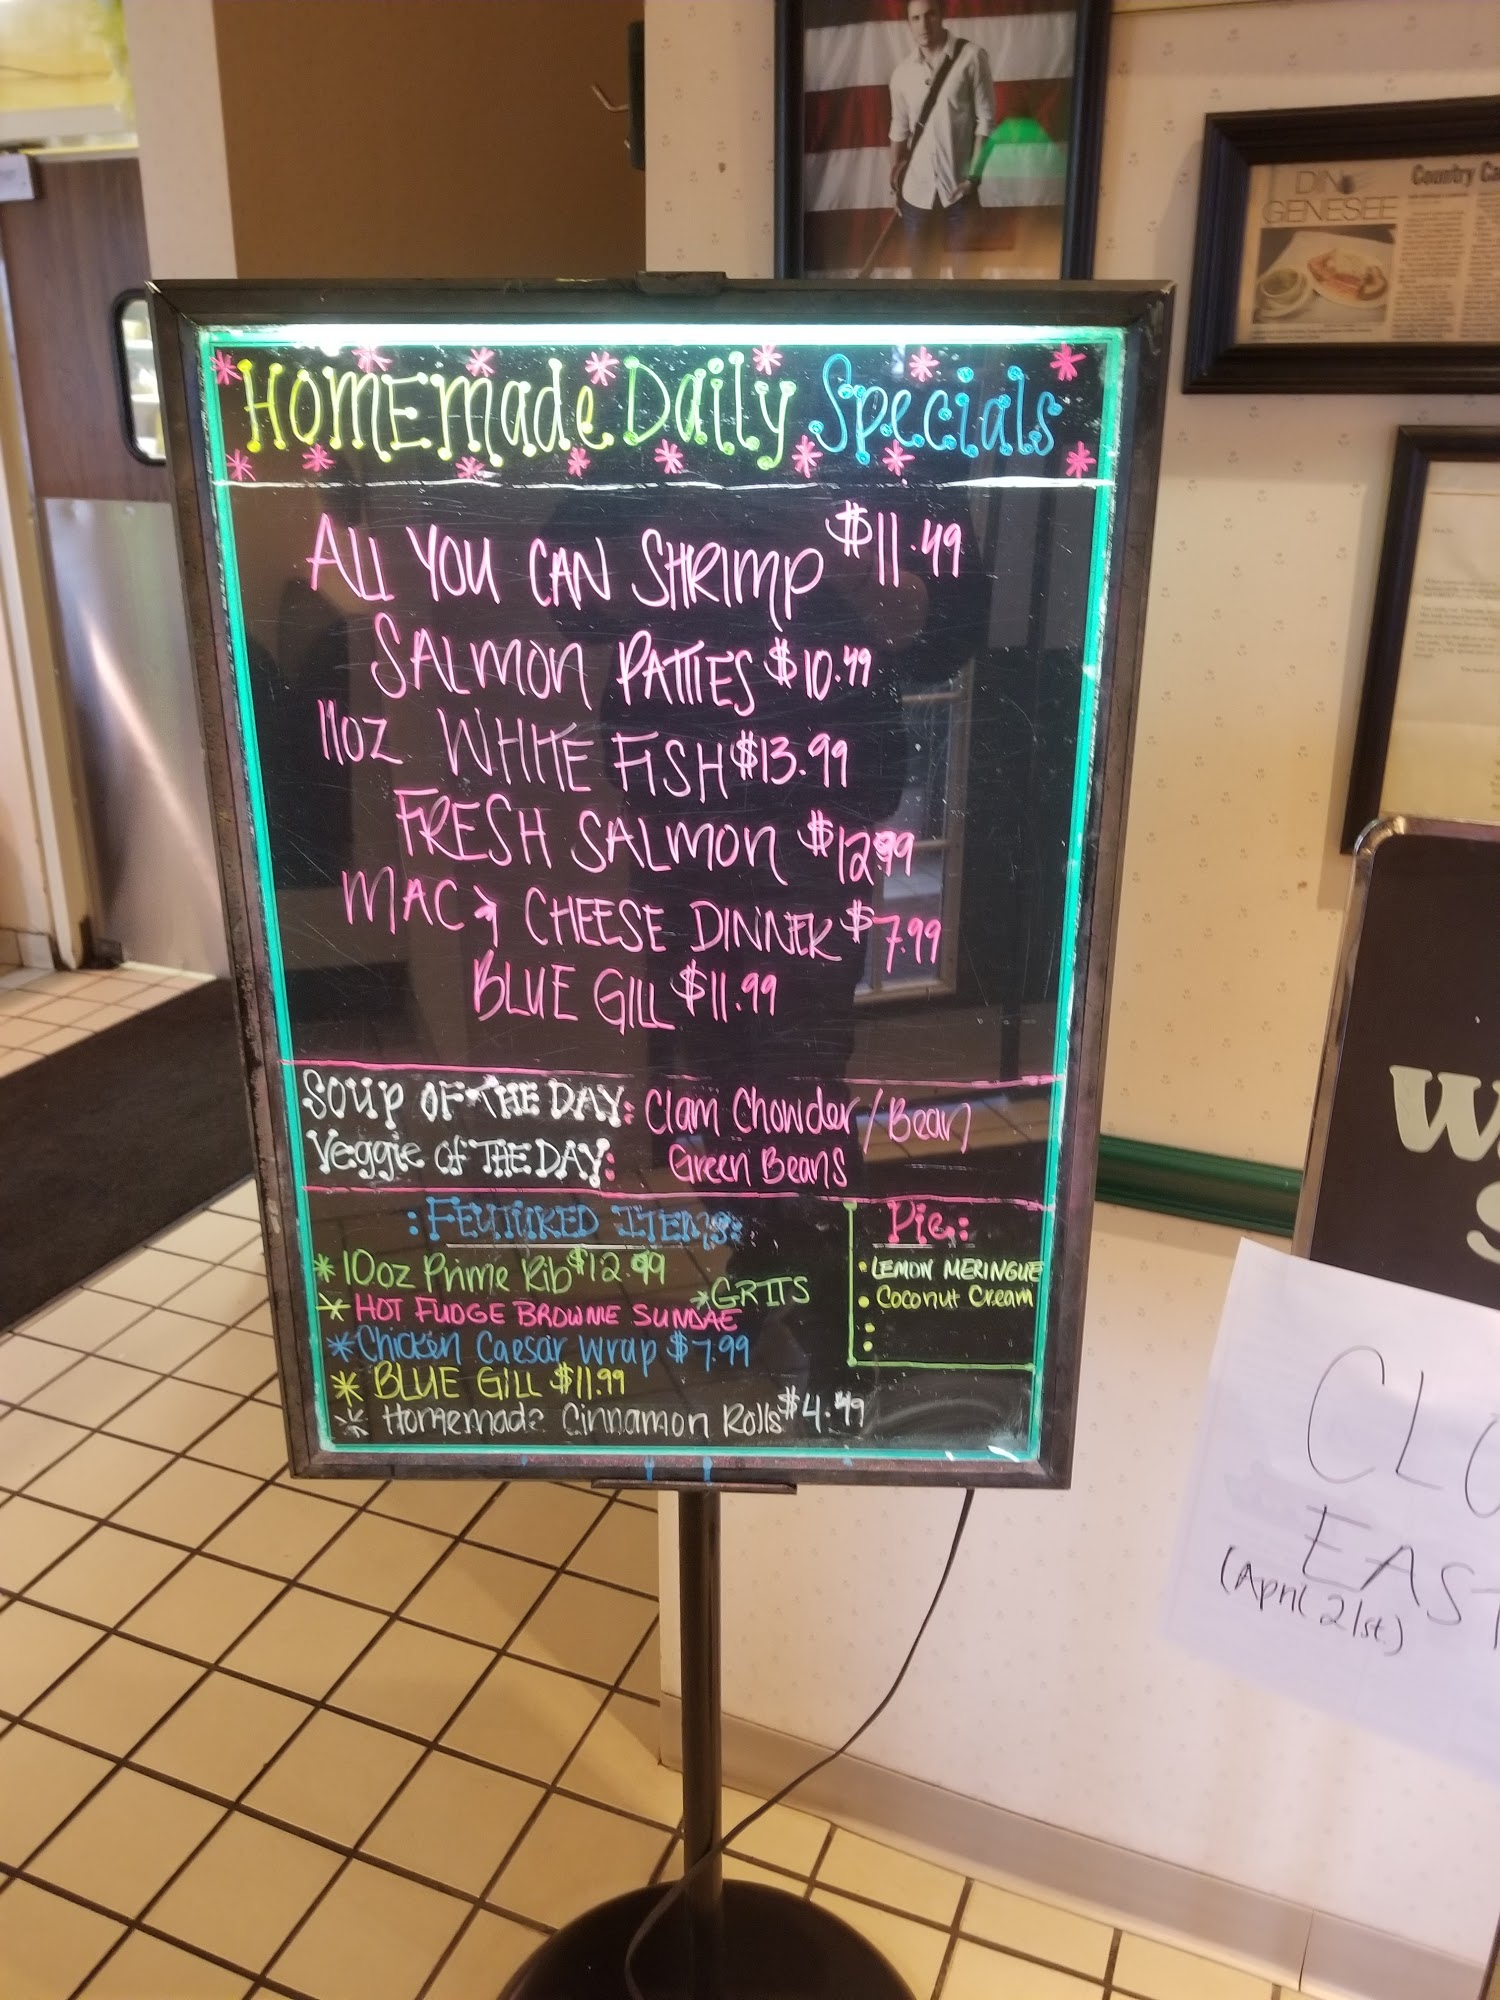 HOMEmade Daily Specials
ALL YOU CAN SHRIMP $11.49
SALMON PATTIES $10.49
11OZ WHITE FISH $13.99
FRESH SALMON $12.99
MAC & CHEESE DINNER $7.99
BLUE GILL $11.99
SOUP OF THE DAY: Clam Chowder / Bean
Veggie OF THE DAY: Green Beans
: FEUTURED ITEMS:
* 10oz Prime Rib $12.99
* GRITS
* HOT FUDGE BROWNIE SUNDAE
* Chicken Caesar Wrap $7.99
* BLUE GILL $11.99
* Homemade Cinnamon Rolls $4.49
Pie:
• LEMON MERINGUE
• Coconut Cream
•
•
GENESEE
Country Ca
CLO
EAST
(April 21st)